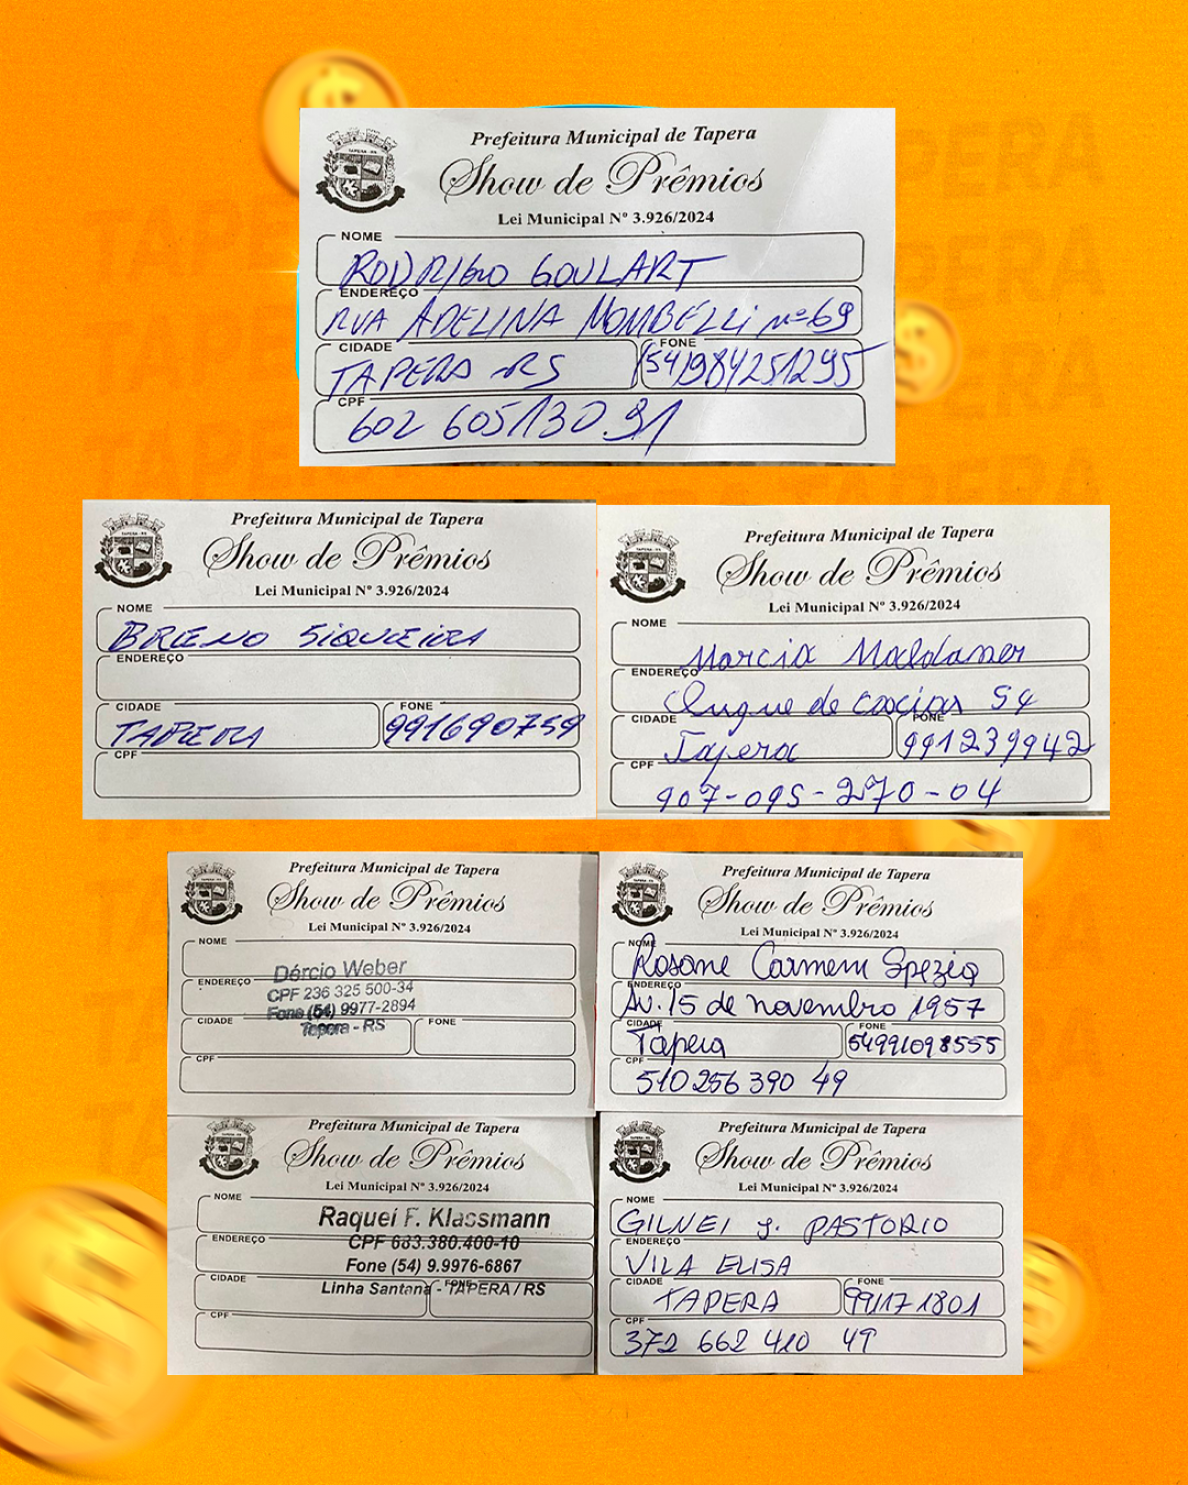 Prefeitura Municipal de Tapera
Show de Prêmios
Lei Municipal Nº 3.926/2024
NOME
RODRIGO GOULART
ENDEREÇO
RUA ADELINA MOMBELLI nº 69
CIDADE FONE
TAPERA RS (54)984251295
CPF
602 605130.91
Prefeitura Municipal de Tapera
Show de Prêmios
Lei Municipal Nº 3.926/2024
NOME
BRENO SIQUEIRA
ENDEREÇO
CIDADE FONE
TAPERA 991690759
CPF
Prefeitura Municipal de Tapera
Show de Prêmios
Lei Municipal Nº 3.926/2024
NOME
Marcia Maldaner
ENDEREÇO
Duque de caxias 54
CIDADE FONE
Tapera 991239942
CPF
907-095-270-04
Prefeitura Municipal de Tapera
Show de Prêmios
Lei Municipal Nº 3.926/2024
NOME
Dércio Weber
ENDEREÇO
CPF 236 325 500-34
Fone (54) 9977-2894
CIDADE FONE
Tapera - RS
CPF
Prefeitura Municipal de Tapera
Show de Prêmios
Lei Municipal Nº 3.926/2024
NOME
Rosane Carmem Spezia
ENDEREÇO
Av. 15 de novembro 1957
CIDADE FONE
Tapera 54991098555
CPF
510 256 390 49
Prefeitura Municipal de Tapera
Show de Prêmios
Lei Municipal Nº 3.926/2024
NOME
Raquel F. Klassmann
ENDEREÇO
CPF 683.380.400-10
Fone (54) 9.9976-6867
CIDADE FONE
Linha Santana - TAPERA / RS
CPF
Prefeitura Municipal de Tapera
Show de Prêmios
Lei Municipal Nº 3.926/2024
NOME
GILNEI J. PASTORIO
ENDEREÇO
VILA ELISA
CIDADE FONE
TAPERA 991171801
CPF
372 662 410 49